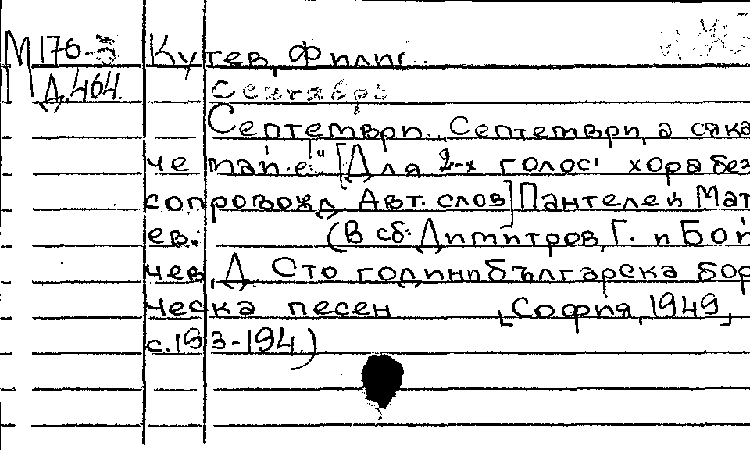 М176-3 Кутев, Филип.
Д.464 Сентябрь
Септември.. Септември, а сяка
че май.е." [Для 2-х голос. хора без
сопровожд. Авт. слов] Пантелей Мат
ев. (В сб: Димитров, Г. и Бой
чев, Д. Сто години българска бор
ческа песен [София, 1949]
с.193-194)